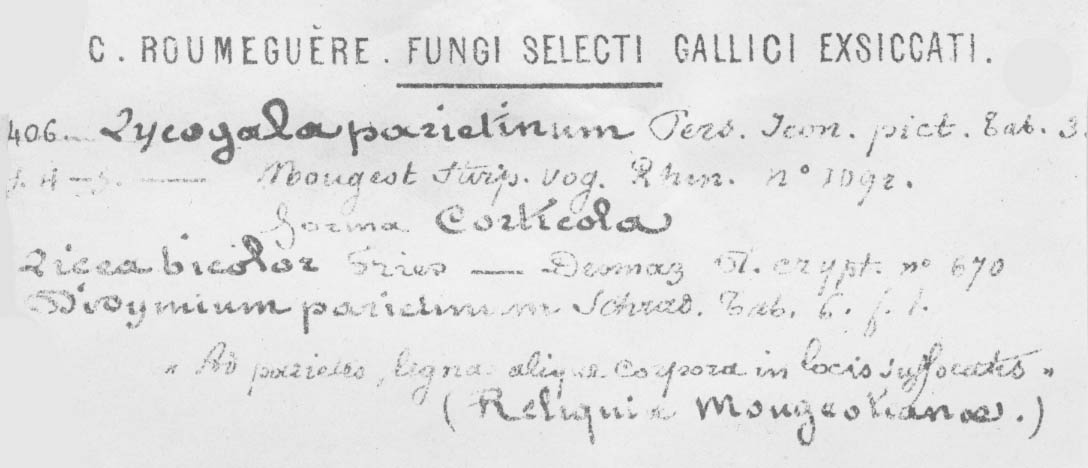 C. ROUMEGUÈRE. FUNGI SELECTI GALLICI EXSICCATI.
406. Lycogala parietinum Pers. Icon. pict. Tab. 3
f. 4-5. — Mougeot Stirp. vog. Rhen. n° 1092.
forma Corticola
Licea bicolor Fries — Desmaz Pl. crypt. n° 670
Didymium parietinum Schrad. Tab. 6. f. 1.
« Ad parietes, ligna aliqua corpora in locis suffocatis »
(Reliquiæ Mougeotianæ.)